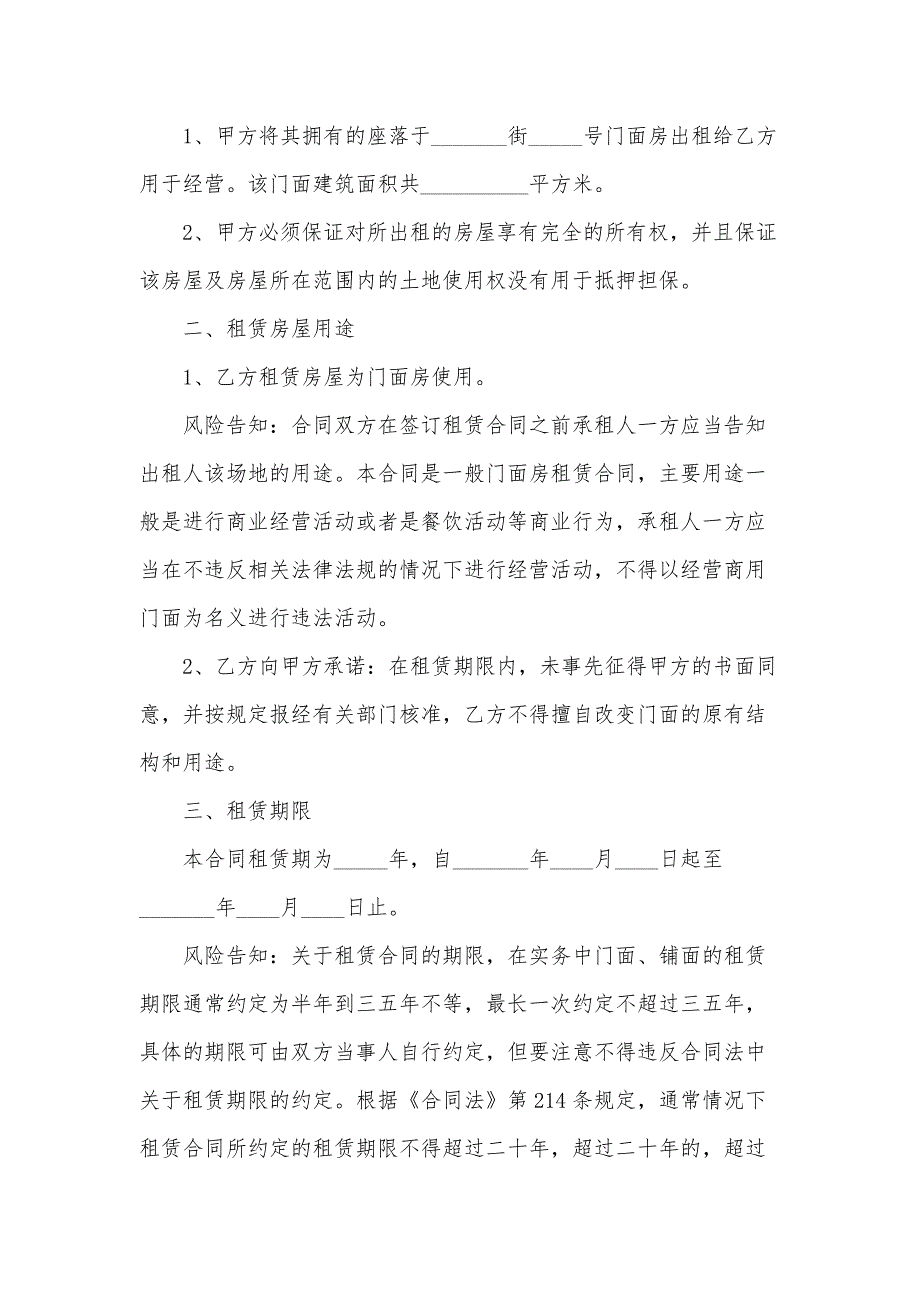 1、甲方将其拥有的座落于_______街_____号门面房出租给乙方
用于经营。该门面建筑面积共__________平方米。
2、甲方必须保证对所出租的房屋享有完全的所有权，并且保证
该房屋及房屋所在范围内的土地使用权没有用于抵押担保。
二、租赁房屋用途
1、乙方租赁房屋为门面房使用。
风险告知：合同双方在签订租赁合同之前承租人一方应当告知
出租人该场地的用途。本合同是一般门面房租赁合同，主要用途一
般是进行商业经营活动或者是餐饮活动等商业行为，承租人一方应
当在不违反相关法律法规的情况下进行经营活动，不得以经营商用
门面为名义进行违法活动。
2、乙方向甲方承诺：在租赁期限内，未事先征得甲方的书面同
意，并按规定报经有关部门核准，乙方不得擅自改变门面的原有结
构和用途。
三、租赁期限
本合同租赁期为_____年，自_______年____月____日起至
_______年____月____日止。
风险告知：关于租赁合同的期限，在实务中门面、铺面的租赁
期限通常约定为半年到三五年不等，最长一次约定不超过三五年，
具体的期限可由双方当事人自行约定，但要注意不得违反合同法中
关于租赁期限的约定。根据《合同法》第 214 条规定，通常情况下
租赁合同所约定的租赁期限不得超过二十年，超过二十年的，超过